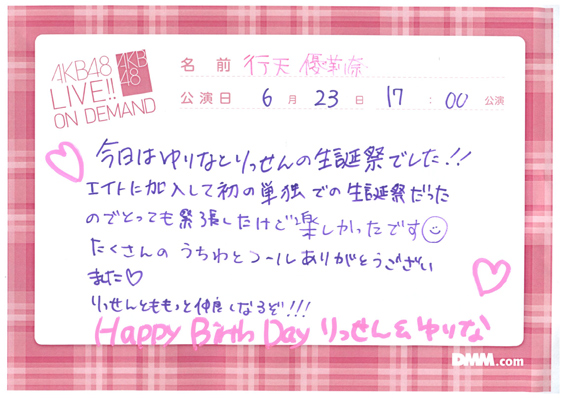 AKB48
LIVE!!
ON DEMAND
AKB
48
名 前 行天 優莉奈
公演日 6 月 23 日 17 : 00 公演
今日はゆりなとりっせんの生誕祭でした!!
エイトに加入して初の単独での生誕祭だった
のでとっても緊張したけど楽しかったです
たくさんの うちわとコールありがとうござい
ました♡
りっせんともっと仲良くなるぞ!!!
Happy Birth Day りっせん & ゆりな
DMM.com